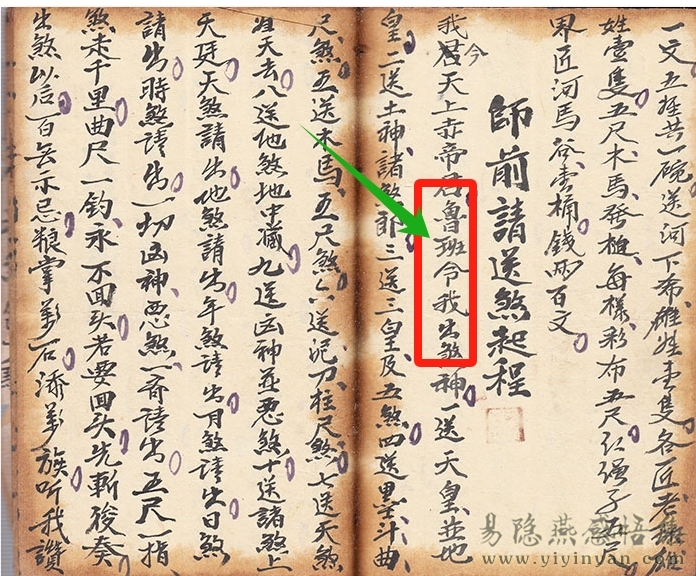 一文五碗送河下布雄姓壹隻各匠老
姓壹隻五尺木馬發槌每樣彩布五尺子五尺
界匠河馬谷壹桶錢百文
師前請送煞起程
我今君天上赤帝君魯班令我出煞神一送天皇並地
皇二送土神諸煞郎三送三皇及五煞四送墨斗曲
尺煞五送木馬五尺煞六送泥刀柱尺煞七送天煞
天去八送地煞地中藏九送凶神並惡煞十送諸煞上
天廷天煞請出地煞請出年煞請出月煞請出日煞
請出時煞請出一切凶神惡煞一齊請出五尺一指
煞走千里曲尺一鈎永不回头若要回头先斬後奏
出煞以后百無示忌粮掌萬石添萬族听我讚
易隐燕感悟集
www.yiyinyan.com